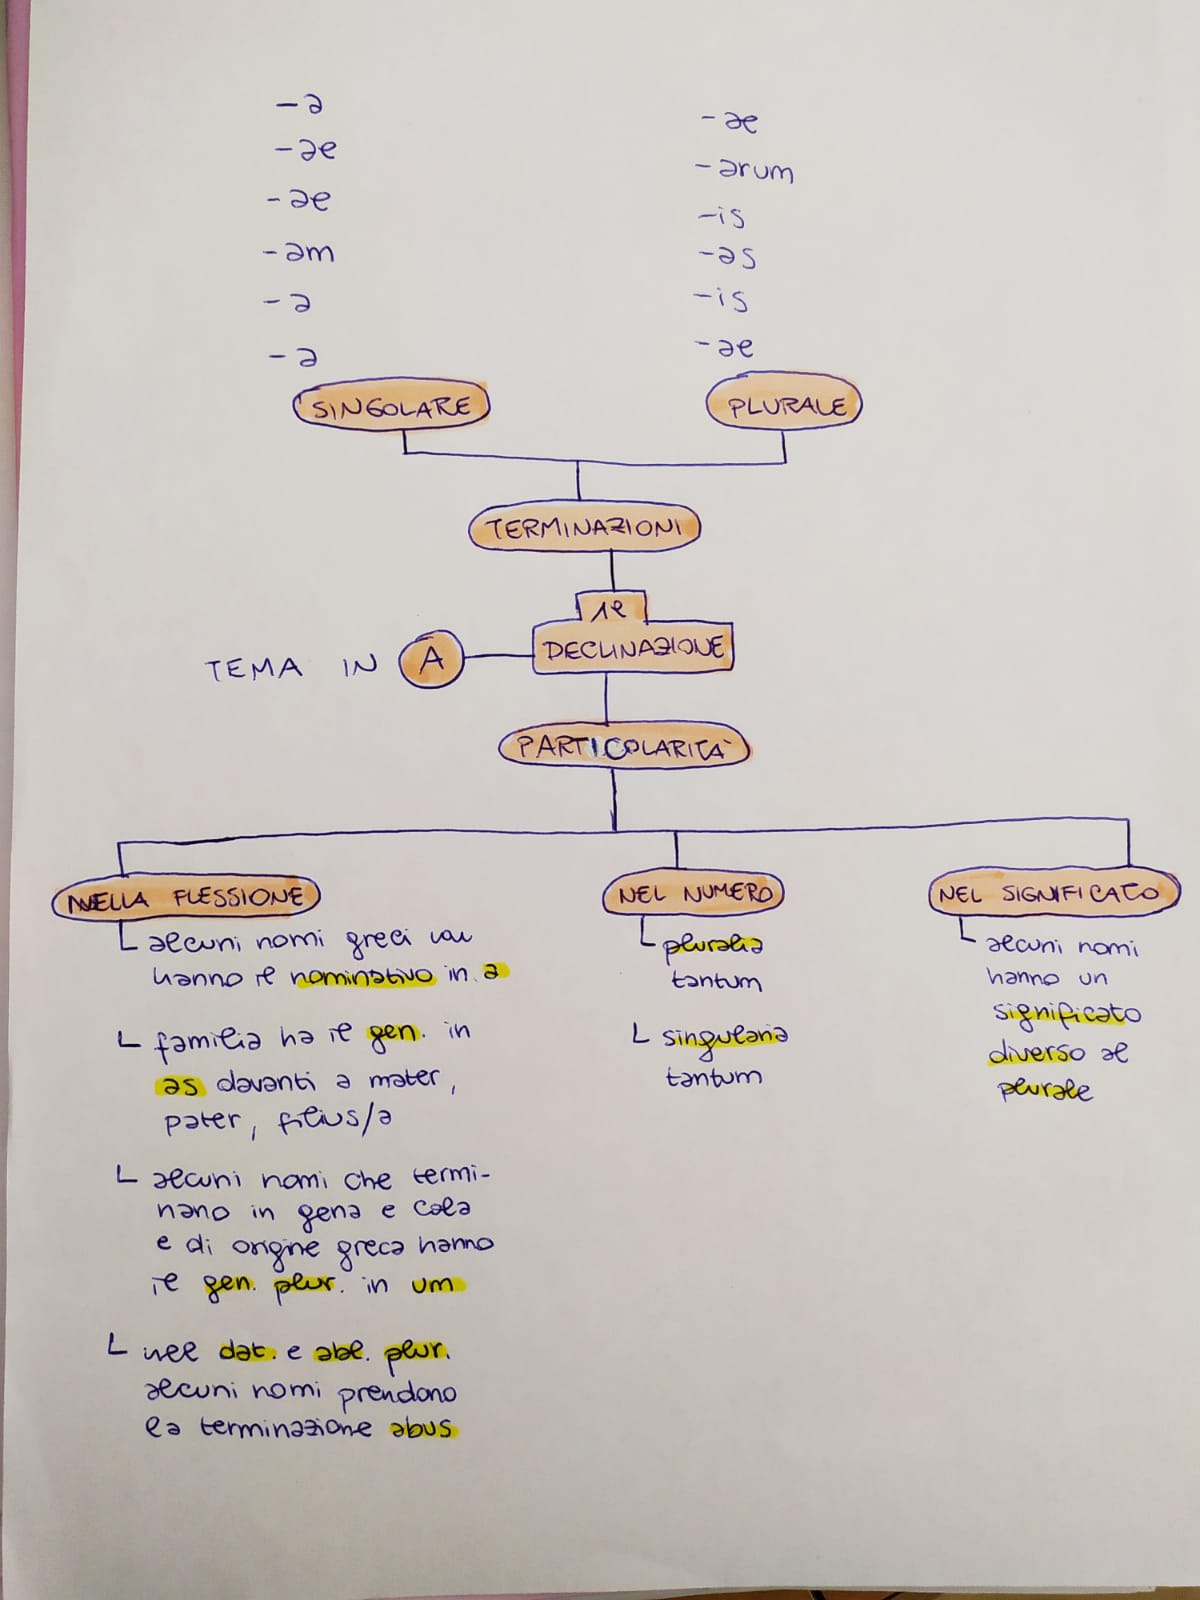 -a
-ae
-ae
-am
-a
-a
-ae
-arum
-is
-as
-is
-ae
SINGOLARE
PLURALE
TERMINAZIONI
1a
DECLINAZIONE
TEMA IN A
PARTICOLARITÀ
NELLA FLESSIONE
alcuni nomi greci
hanno il nominativo in a
familia ha il gen. in
as davanti a mater,
pater, filius/a
alcuni nomi che termi-
nano in gena e cola
e di origine greca hanno
il gen. plur. in um
nel dat. e abl. plur.
alcuni nomi prendono
la terminazione abus
NEL NUMERO
pluralia
tantum
singularia
tantum
NEL SIGNIFICATO
alcuni nomi
hanno un
significato
diverso al
plurale